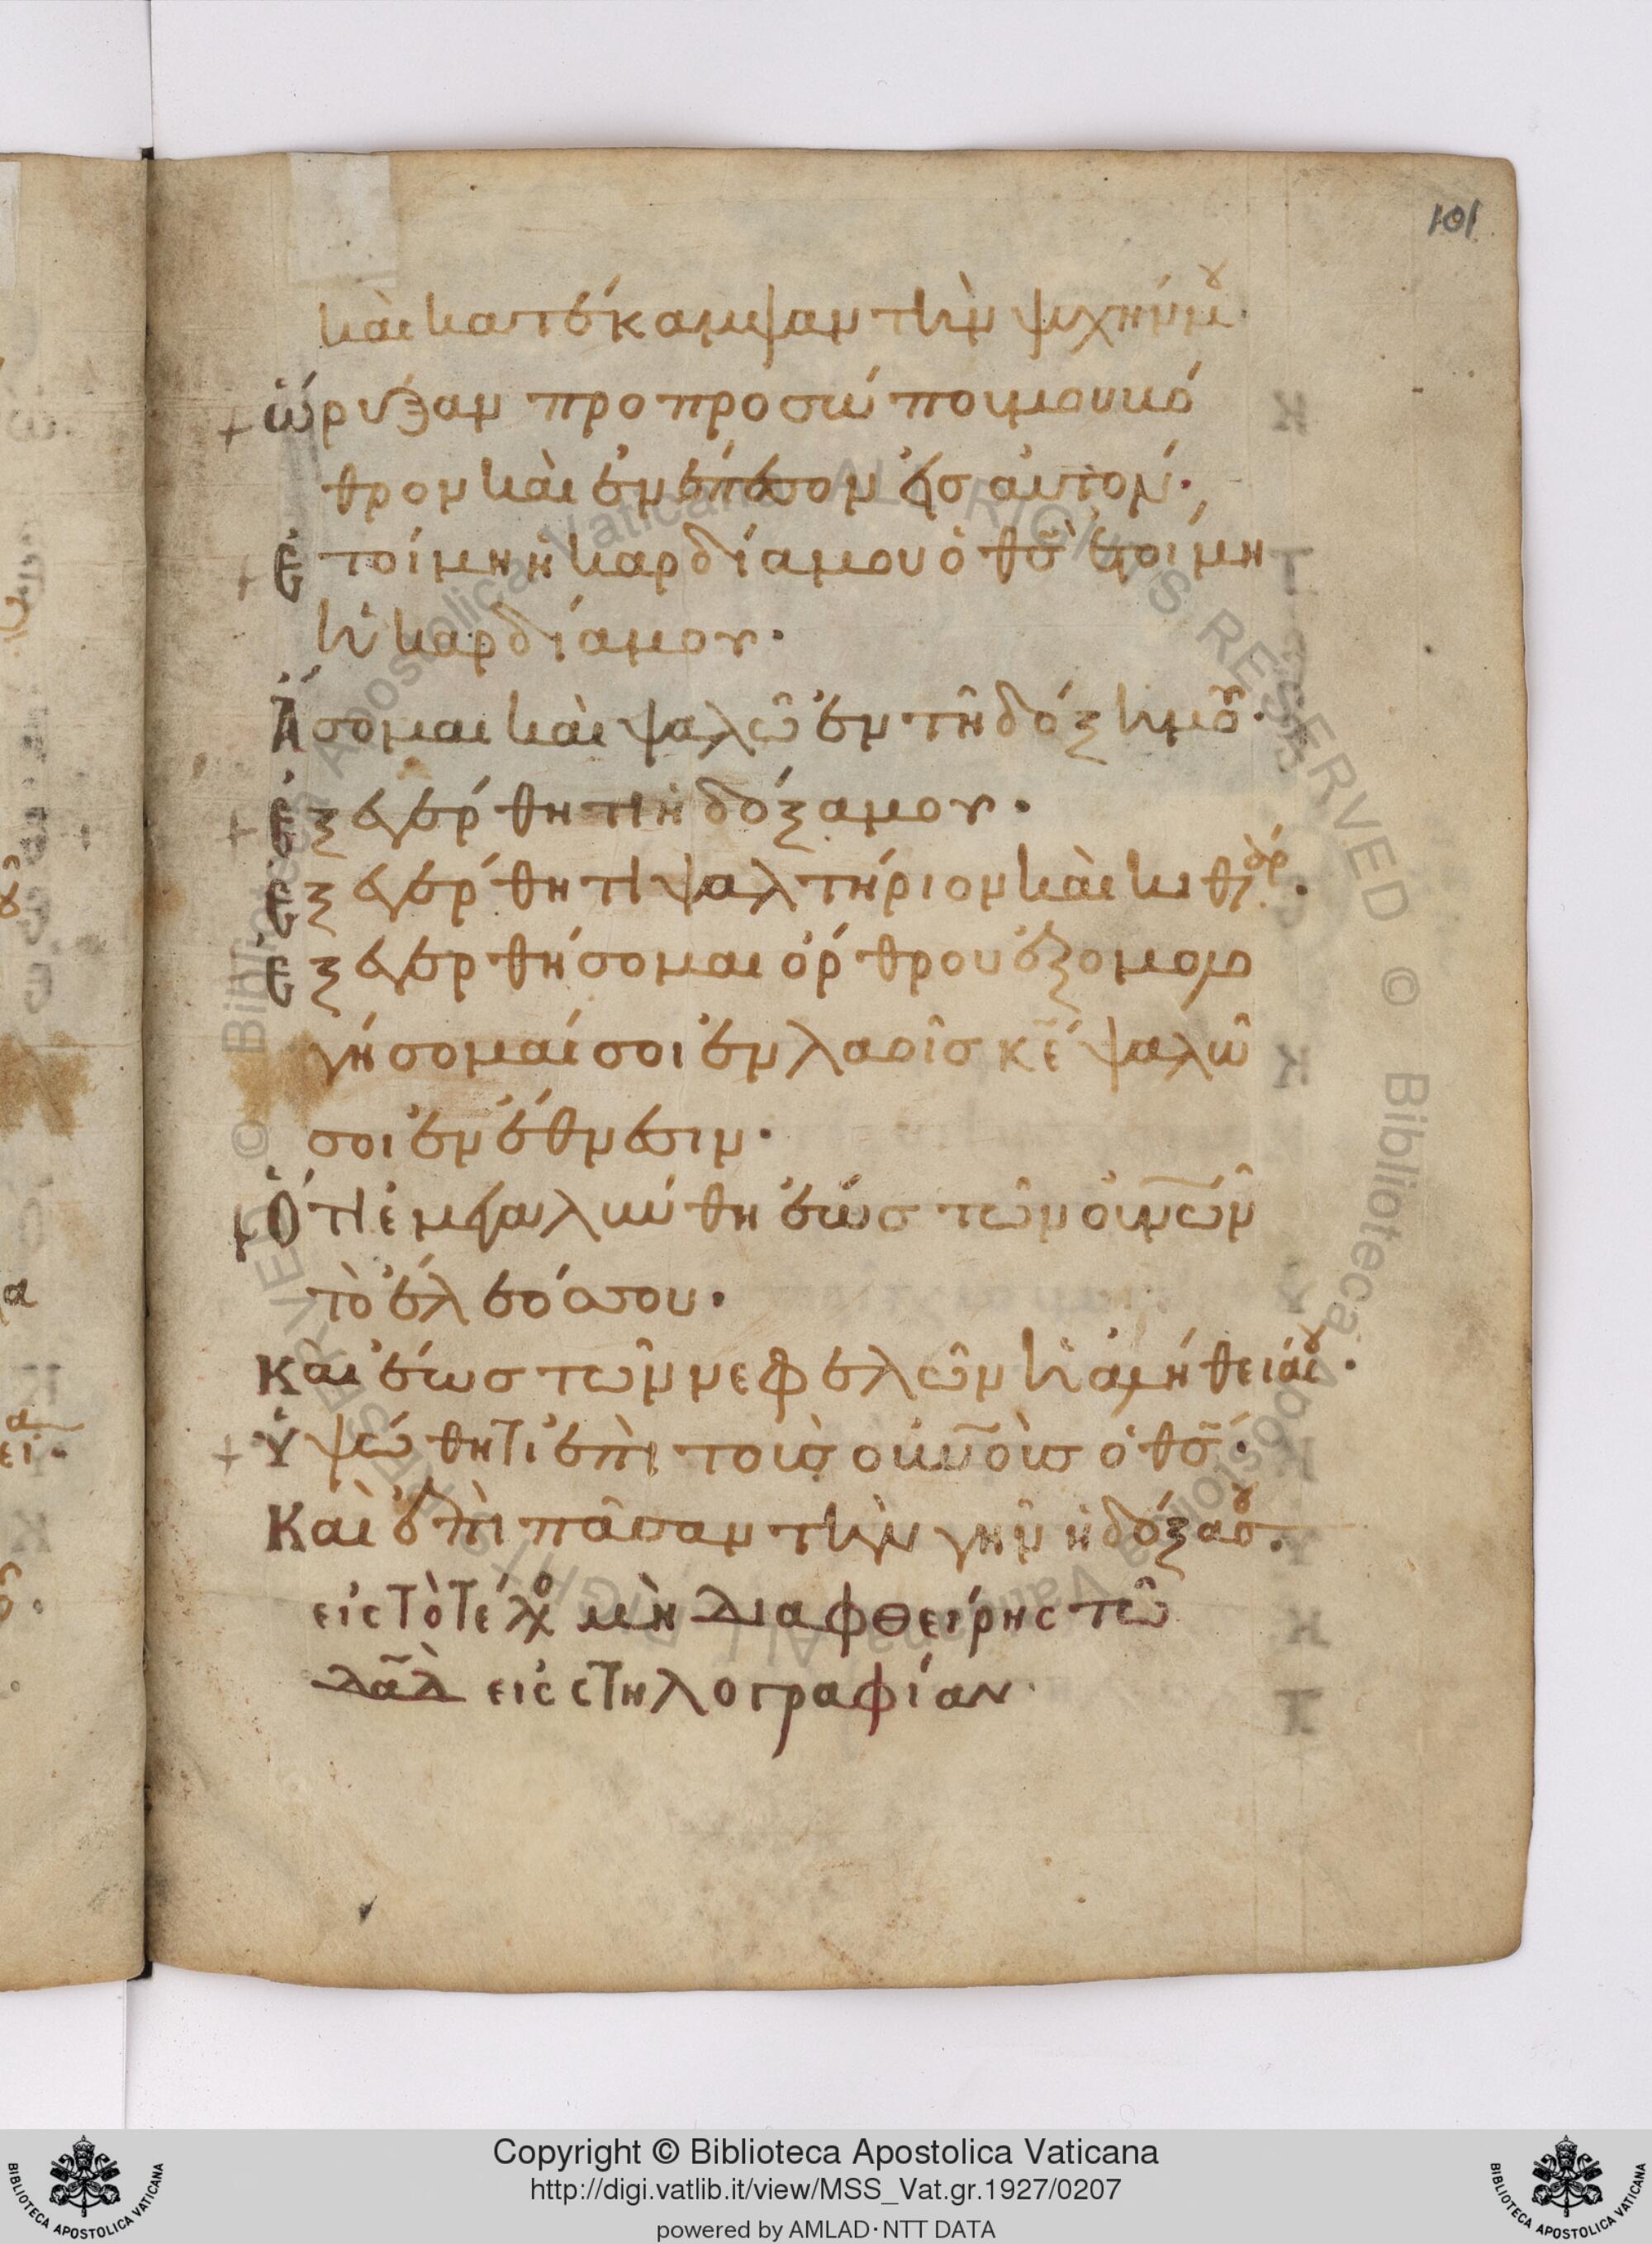 101
καὶ κατέκαμψαν τὴν ψυχήν μου·
ὤρυξαν πρὸ προσώπου μου βό
θρον καὶ ἐνέπεσον εἰς αὐτόν·
Ἑτοίμη ἡ καρδία μου ὁ θσ̅ ἑτοίμη
ἡ καρδία μου·
Ἄσομαι καὶ ψαλῶ ἐν τῇ δόξῃ μου·
Ἐξεγέρθητι ἡ δόξα μου·
Ἐξεγέρθητι ψαλτήριον καὶ κιθάρ·
Ἐξεγερθήσομαι ὄρθρου ἐξομολο
γήσομαί σοι ἐν λαοῖς κε̅ ψαλῶ
σοι ἐν ἔθνεσιν·
Ὅτι ἐμεγαλύνθη ἕως τῶν οὐν̅ῶν
τὸ ἔλεός σου·
Και ἕως τῶν νεφελῶν ἡ ἀλήθειά σου·
Ὑψώθητι ἐπὶ τοὺς οὐν̅οὺς ὁ θσ̅·
Καὶ ἐπὶ πᾶσαν τὴν γῆν ἡ δόξα σου·
εἰς τὸ τέλο μὴ διαφθείρης τῶ
δα̅δ εἰς στηλογραφίαν·
Copyright © Biblioteca Apostolica Vaticana
http://digi.vatlib.it/view/MSS_Vat.gr.1927/0207
powered by AMLAD·NTT DATA
BIBLIOTECA APOSTOLICA VATICANA
BIBLIOTECA APOSTOLICA VATICANA